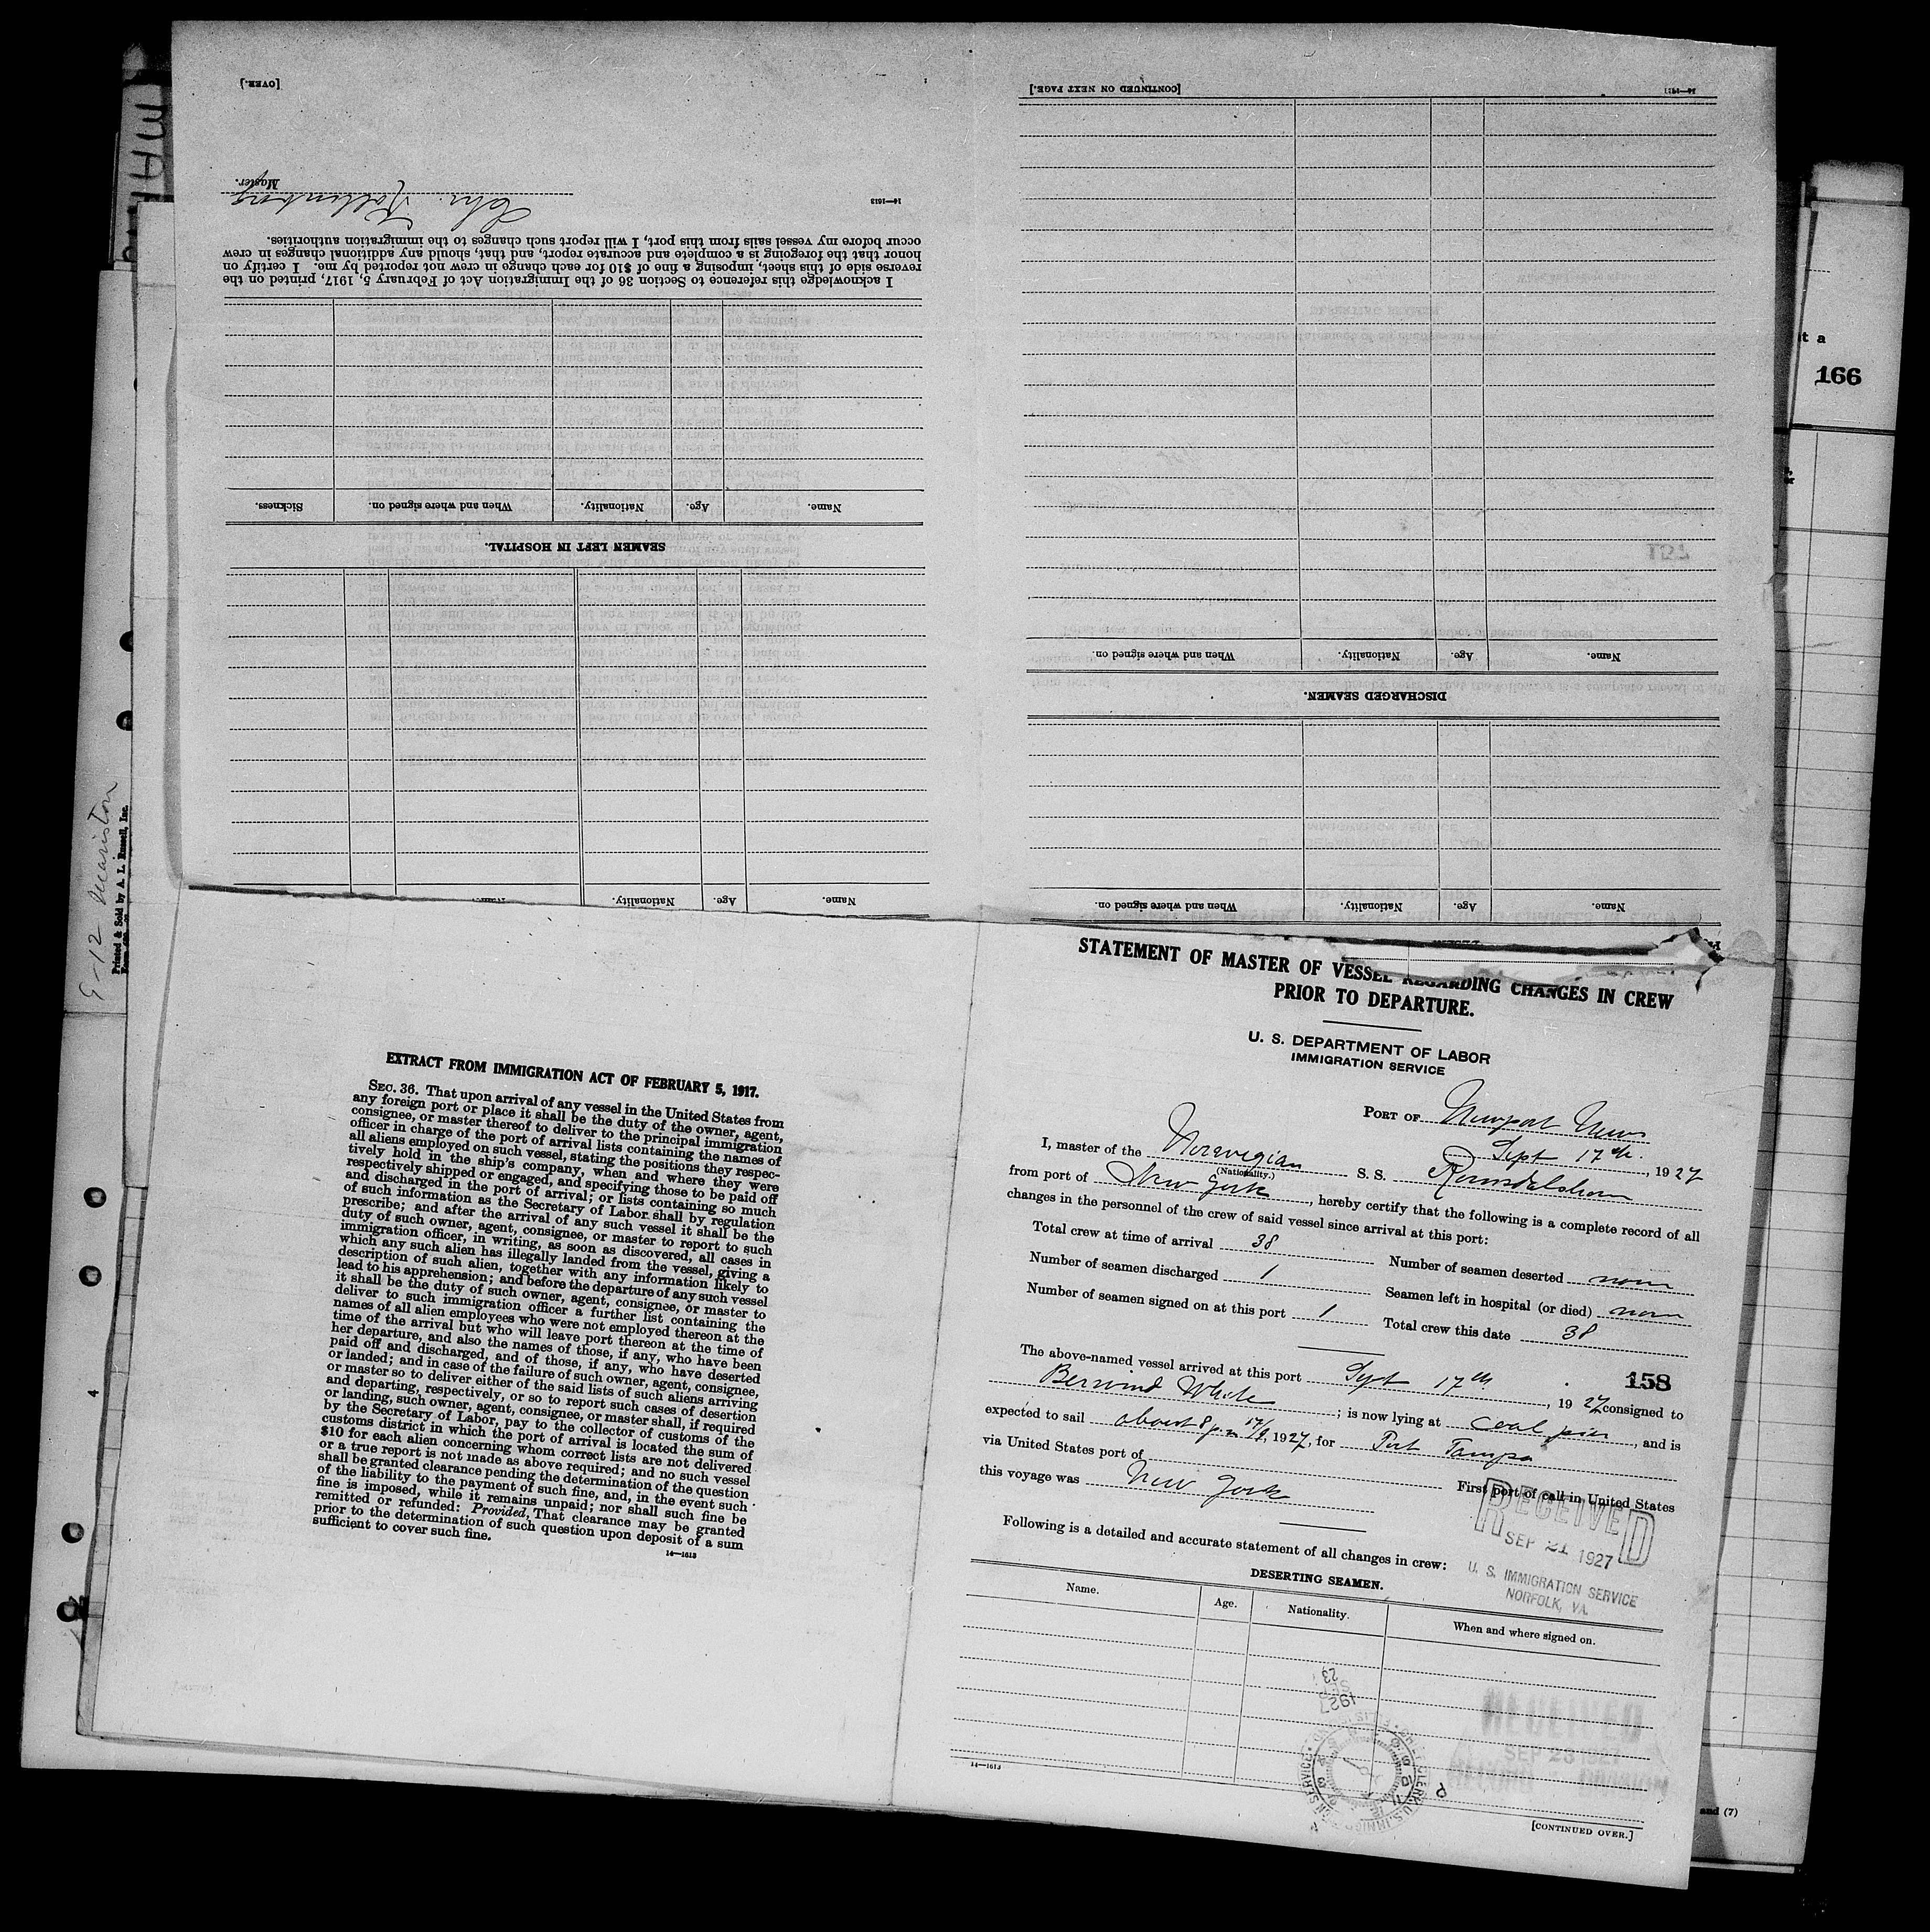 [OVER.]
Master.
14—1613
I acknowledge this reference to Section 36 of the Immigration Act of February 5, 1917, printed on the
reverse side of this sheet, imposing a fine of $10 for each change in crew not reported by me. I certify on
honor that the foregoing is a complete and accurate report, and that, should any additional changes in crew
occur before my vessel sails from this port, I will report such changes to the immigration authorities.
Name. Age. Nationality. When and where signed on. Sickness.
SEAMEN LEFT IN HOSPITAL.
Name. Age. Nationality.
[CONTINUED ON NEXT PAGE.]
Name. Age. Nationality. When and where signed on.
DISCHARGED SEAMEN.
Name. Age. Nationality. When and where signed on.
t a
166
9-12
Printed & Sold by A. L. Russell, Inc.
4
EXTRACT FROM IMMIGRATION ACT OF FEBRUARY 5, 1917.
SEC. 36. That upon arrival of any vessel in the United States from
any foreign port or place it shall be the duty of the owner, agent,
consignee, or master thereof to deliver to the principal immigration
officer in charge of the port of arrival lists containing the names of
all aliens employed on such vessel, stating the positions they respec-
tively hold in the ship's company, when and where they were
respectively shipped or engaged, and specifying those to be paid off
and discharged in the port of arrival; or lists containing so much
of such information as the Secretary of Labor shall by regulation
prescribe; and after the arrival of any such vessel it shall be the
duty of such owner, agent, consignee, or master to report to such
immigration officer, in writing, as soon as discovered, all cases in
which any such alien has illegally landed from the vessel, giving a
description of such alien, together with any information likely to
lead to his apprehension; and before the departure of any such vessel
it shall be the duty of such owner, agent, consignee, or master to
deliver to such immigration officer a further list containing the
names of all alien employees who were not employed thereon at the
time of the arrival but who will leave port thereon at the time of
her departure, and also the names of those, if any, who have been
paid off and discharged, and of those, if any, who have deserted
or landed; and in case of the failure of such owner, agent, consignee,
or master so to deliver either of the said lists of such aliens arriving
and departing, respectively, or so to report such cases of desertion
or landing, such owner, agent, consignee, or master shall, if required
by the Secretary of Labor, pay to the collector of customs of the
customs district in which the port of arrival is located the sum of
$10 for each alien concerning whom correct lists are not delivered
or a true report is not made as above required; and no such vessel
shall be granted clearance pending the determination of the question
of the liability to the payment of such fine, and, in the event such
fine is imposed, while it remains unpaid; nor shall such fine be
remitted or refunded: Provided, That clearance may be granted
prior to the determination of such question upon deposit of a sum
sufficient to cover such fine.
14—1613
STATEMENT OF MASTER OF VESSEL REGARDING CHANGES IN CREW
PRIOR TO DEPARTURE.
U. S. DEPARTMENT OF LABOR
IMMIGRATION SERVICE
PORT OF Newport News
Sept 17th, 1927
I, master of the Norwegian S. S. Romsdalshorn
(Nationality.)
from port of New York, hereby certify that the following is a complete record of all
changes in the personnel of the crew of said vessel since arrival at this port:
Total crew at time of arrival 38 Number of seamen deserted none
Number of seamen discharged 1 Seamen left in hospital (or died) none
Number of seamen signed on at this port 1 Total crew this date 38
158
The above-named vessel arrived at this port Sept 17th, 1927 consigned to
Berwind White; is now lying at coal pier, and is
expected to sail about 8 p.m. 17/9, 1927, for Port Tampa
via United States port of First port of call in United States
this voyage was New York
RECEIVED
SEP 21 1927
U. S. IMMIGRATION SERVICE
NORFOLK, VA.
Following is a detailed and accurate statement of all changes in crew:
DESERTING SEAMEN.
Name. Age. Nationality. When and where signed on.
1927
23
RECEIVED
SEP 23 1927
RECORD DIVISION
14—1613
[CONTINUED OVER.]
and (7)